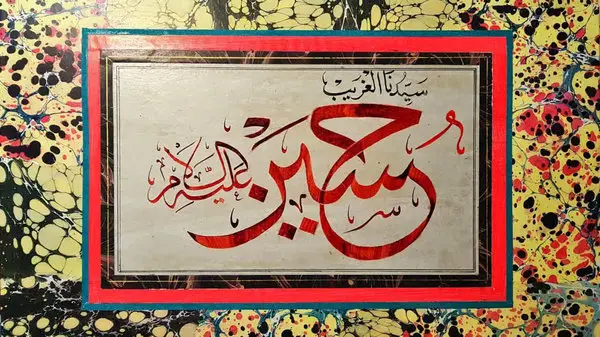 سَيِّدُنَا الغَرِيبْ
حُسَيْن عَلَيْهِ السَّلَام